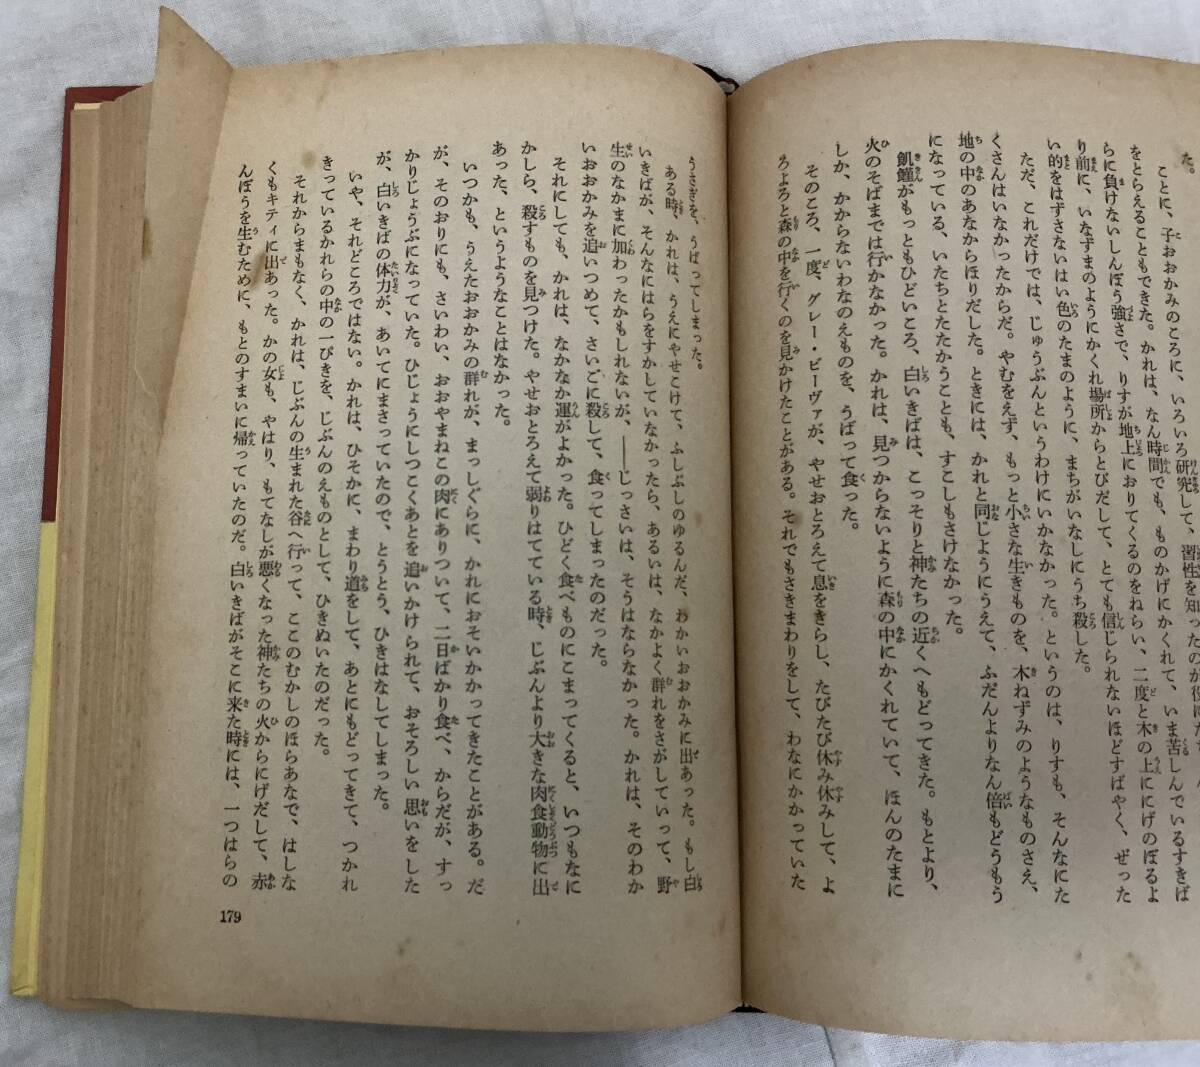 た。
ことに、子おおかみのころに、いろいろ研究して、習性を知ったのが役にたち
をとらえることもできた。かれは、なん時間でも、ものかげにかくれて、いま苦しんでいるすきば
らに負けないしんぼう強さで、りすが地上におりてくるのをねらい、二度と木の上ににげのぼるよ
り前に、いなずまのようにかくれ場所からとびだして、とても信じられないほどすばやく、ぜった
い的をはずさないはい色のたまのように、まちがいなしにうち殺した。
ただ、これだけでは、じゅうぶんというわけにいかなかった。というのは、りすも、そんなにた
くさんはいなかったからだ。やむをえず、もっと小さな生きものを、木ねずみのようなものさえ、
地の中のあなからほりだした。ときには、かれと同じようにうえて、ふだんよりなん倍もどうもう
になっている、いたちとたたかうことも、すこしもさけなかった。
飢饉がもっともひどいころ、白いきばは、こっそりと神たちの近くへもどってきた。もとより、
火のそばまでは行かなかった。かれは、見つからないように森の中にかくれていて、ほんのたまに
しか、かからないわなのえものを、うばって食った。
そのころ、一度、グレー・ビーヴァが、やせおとろえて息をきらし、たびたび休み休みして、よ
ろよろと森の中を行くのを見かけたことがある。それでもさきまわりをして、わなにかかっていた
うさぎを、うばってしまった。
ある時、かれは、うえにやせこけて、ふしぶしのゆるんだ、わかいおおかみに出あった。もし白
いきばが、そんなにはらをすかしていなかったら、あるいは、なかよく群れをさがしていって、野
生のなかまに加わったかもしれないが、――じっさいは、そうはならなかった。かれは、そのわか
いおおかみを追いつめて、さいごに殺して、食ってしまったのだった。
それにしても、かれは、なかなか運がよかった。ひどく食べものにこまってくると、いつもなに
かしら、殺すものを見つけた。やせおとろえて弱りはてている時、じぶんより大きな肉食動物に出
あった、というようなことはなかった。
いつかも、うえたおおかみの群れが、まっしぐらに、かれにおそいかかってきたことがある。だ
が、そのおりにも、さいわい、おおやまねこの肉にありついて、二日ばかり食べ、からだが、すっ
かりじょうぶになっていた。ひじょうにしつこくあとを追いかけられて、おそろしい思いをした
が、白いきばの体力が、あいてにまさっていたので、とうとう、ひきはなしてしまった。
いや、それどころではない。かれは、ひそかに、まわり道をして、あとにもどってきて、つかれ
きっているかれらの中の一ぴきを、じぶんのえものとして、ひきぬいたのだった。
それからまもなく、かれは、じぶんの生まれた谷へ行って、ここのむかしのほらあなで、はしな
くもキティに出あった。かの女も、やはり、もてなしが悪くなった神たちの火からにげだして、赤
んぼうを生むために、もとのすまいに帰っていたのだ。白いきばがそこに来た時には、一つはらの
179